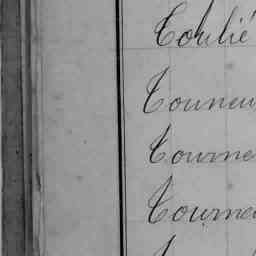 Toulié
Touneu
Tourne
Tourne